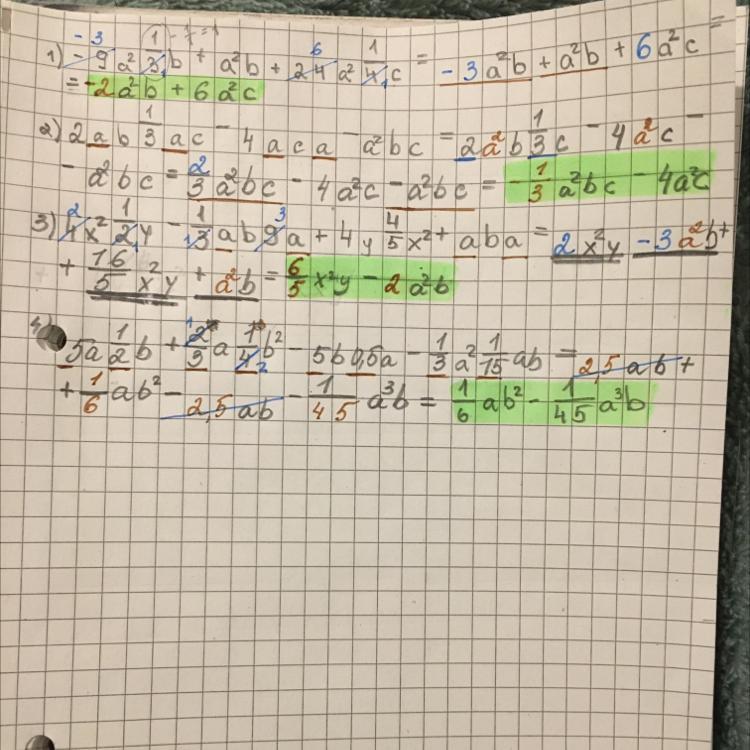 1) -9a² 1/3 b + a²b + 24a² 1/4 c = -3a²b + a²b + 6a²c =
= -2a²b + 6a²c
2) 2ab 1/3 ac - 4aca - a²bc = 2a²b 1/3 c - 4a²c -
- a²bc = 2/3 a²bc - 4a²c - a²bc = - 1/3 a²bc - 4a²c
3) 4x² 1/2 y - 1/3 ab9a + 4y 4/5 x² + aba = 2x²y - 3a²b +
+ 16/5 x²y + a²b = 6/5 x²y - 2a²b
4) 5a 1/2 b + 2/3 a 1/4 b² - 5b0,5a - 1/3 a² 1/15 ab = 2,5ab +
+ 1/6 ab² - 2,5ab - 1/45 a³b = 1/6 ab² - 1/45 a³b